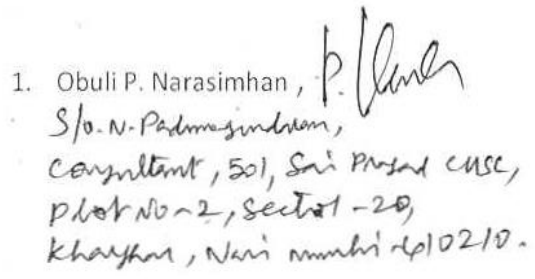 1. Obuli P. Narasimhan ,
S/o. N. Padmagindran,
Consultant, 501, Sai Prasad CHSC,
Plot No-2, Sector-20,
Kharghar, Navi mumbai 410210.